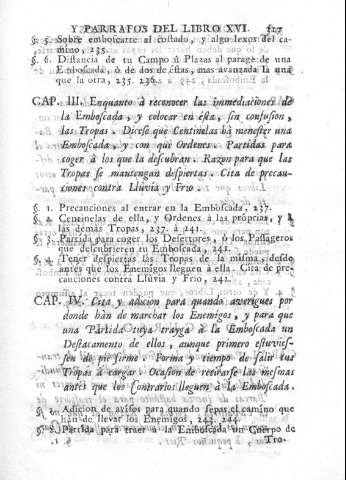 Y PARRAFOS DEL LIBRO XVI. 527
§. 5. Sobre emboscarte al costado, y algo lexos del camino, 235.
§. 6. Distancia de tu Campo ù Plazas al parage de una
Emboscada, ò de dos de éstas, mas avanzada la una
que la otra, 235. 236.
CAP. III. Enquanto à reconocer las immediaciones de
la Emboscada, y colocar en ésta, sin confusion,
las Tropas. Dicese què Centinelas hà menester una
Emboscada, y con què Ordenes. Partidas para
coger à los que la descubran. Razon para que las
Tropas se mantengan despiertas. Cita de precau-
ciones contra Lluvia y Frio.
§. 1. Precauciones al entrar en la Emboscada, 237.
§. 2. Centinelas de ella, y Ordenes à las proprias, y à
las demàs Tropas, 237. à 241.
§. 3. Partida para coger los Desertores, ò los Passageros
que descubrieren tu Emboscada, 241.
§. 4. Tener despiertas las Tropas de la misma, desde
antes que los Enemigos lleguen à ella. Cita de pre-
cauciones contra Lluvia y Frio, 242.
CAP. IV. Cita y adicion para quando averigues por
donde hàn de marchar los Enemigos, y para que
una Partida tuya trayga à la Emboscada un
Destacamento de ellos, aunque primero estuvies-
sen de pie firme. Forma y tiempo de salir tus
Tropas à cargar. Ocasion de retirarse las mesmas
antes que los Contrarios lleguen à la Emboscada.
§. 1. Adicion de avisos para quando sepas el camino que
hàn de llevar los Enemigos, 243. 244.
§. 2. Partida para traer à la Emboscada un Cuerpo de
Tro-